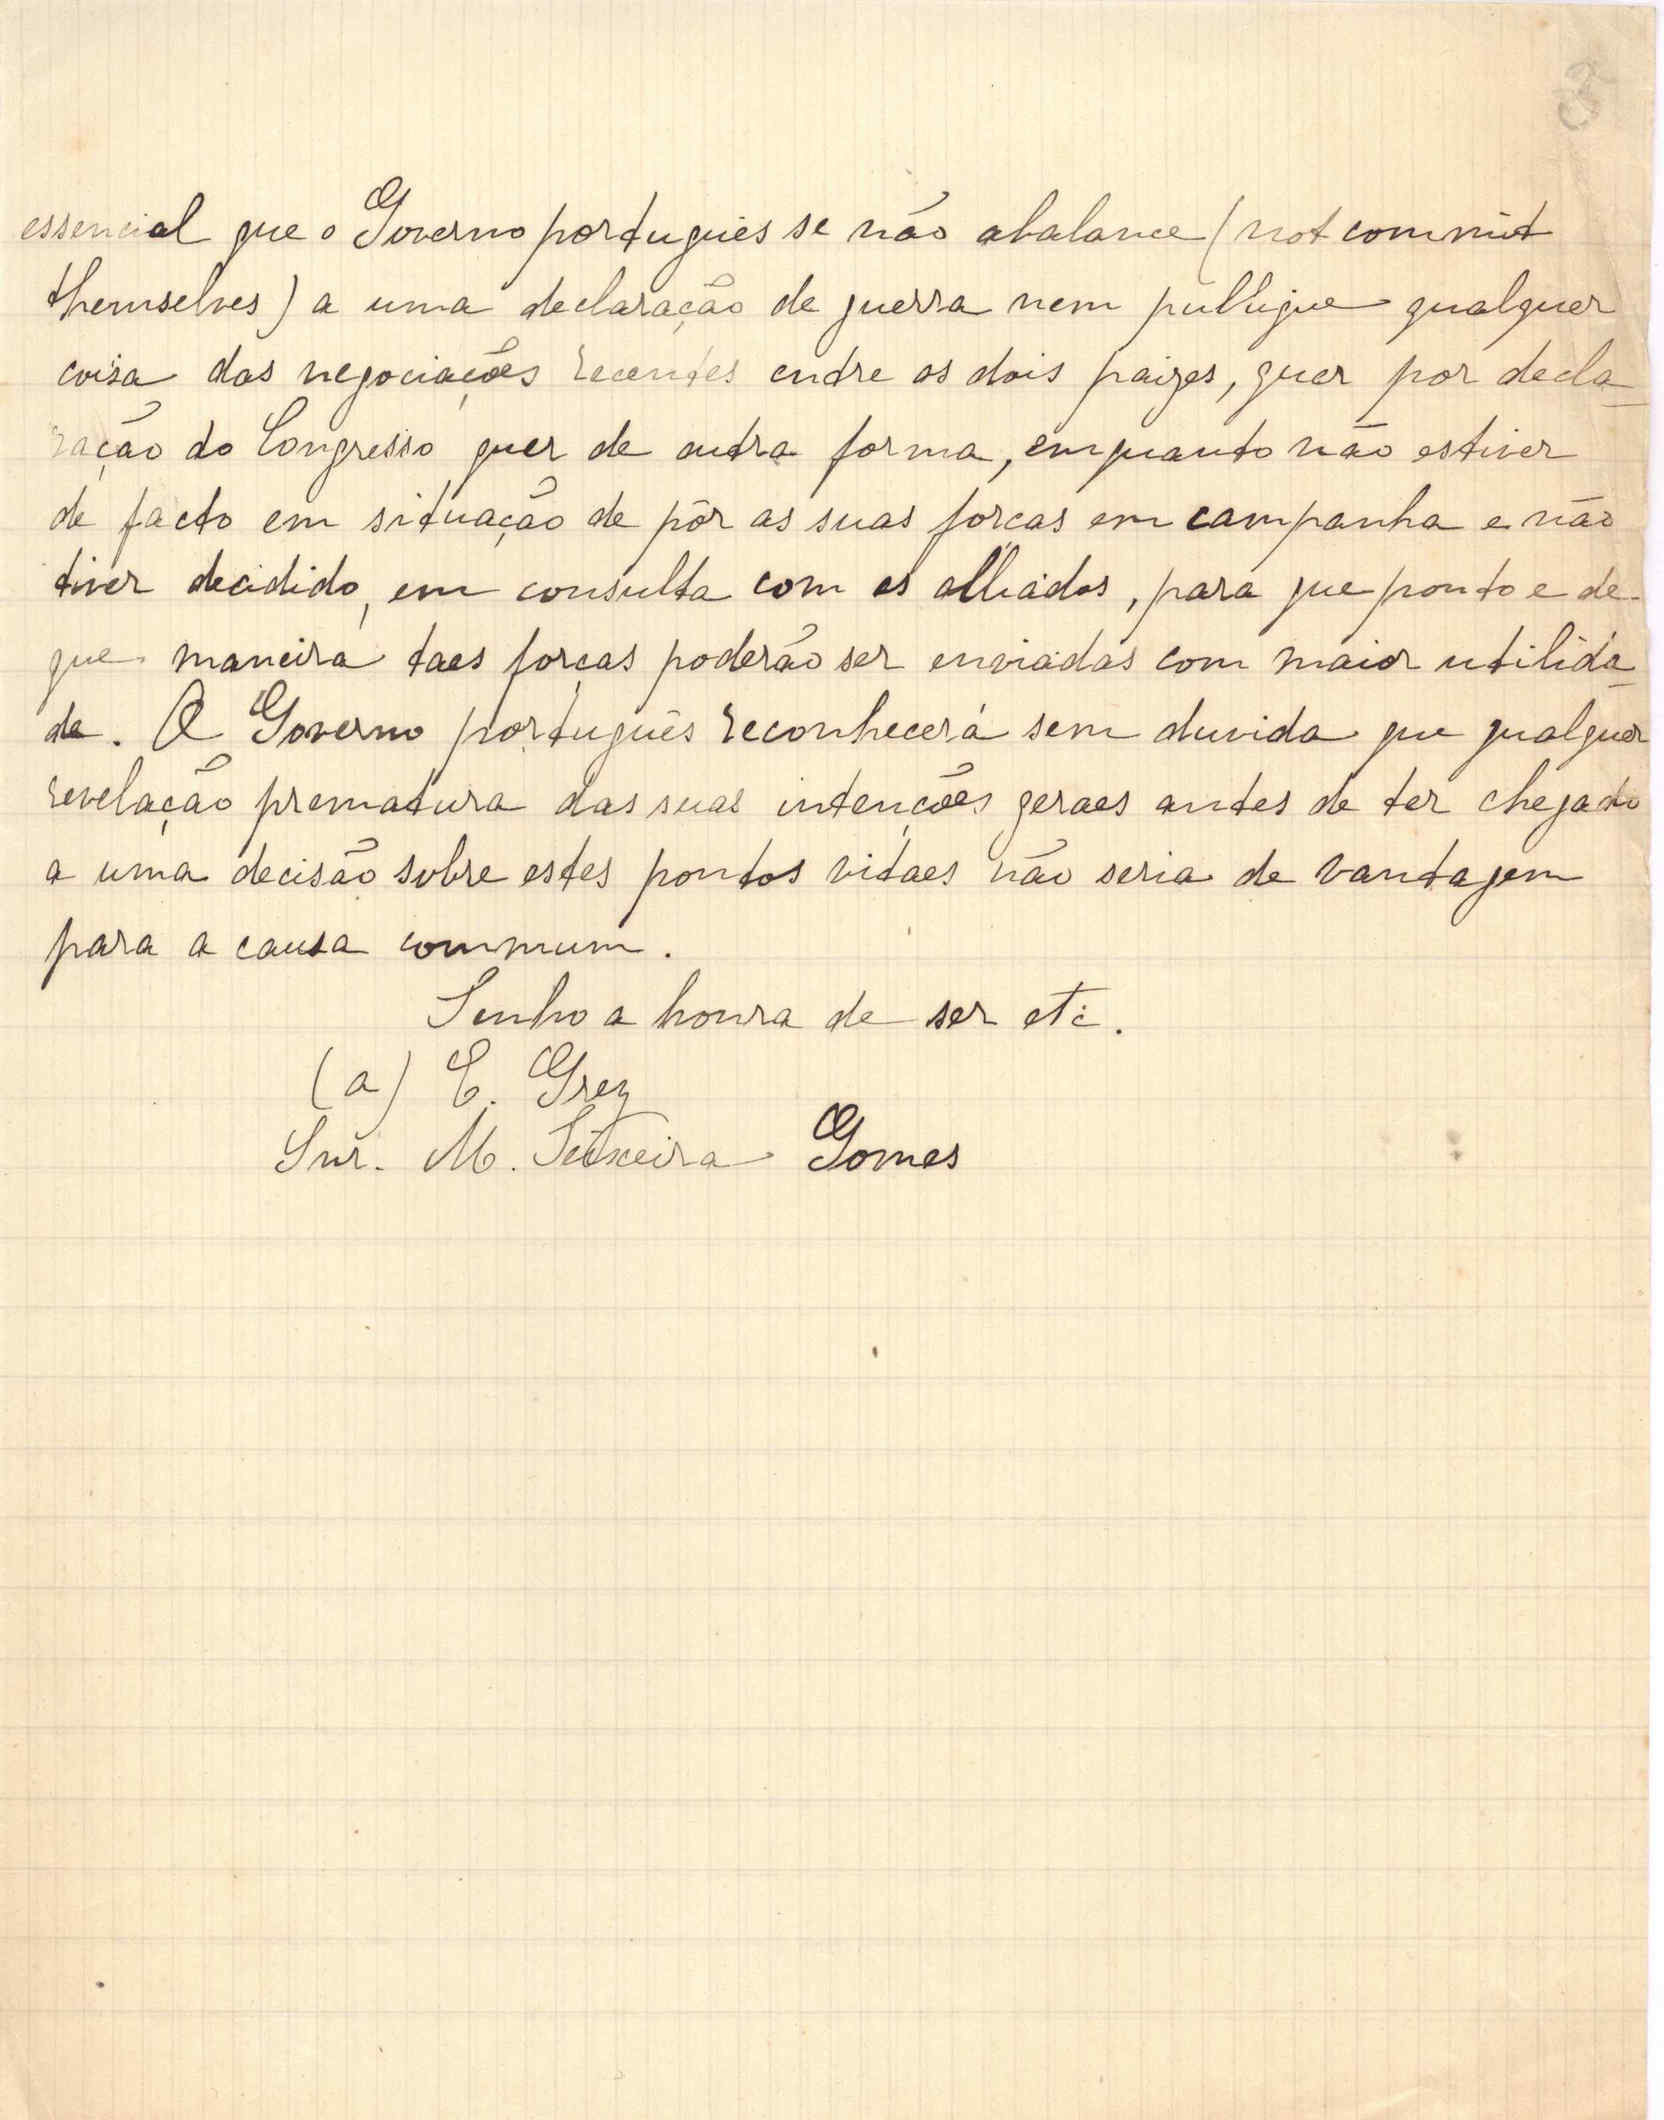 3
essencial que o Governo português se não abalance (not commit
themselves) a uma declaração de guerra nem publique qualquer
coisa das negociações recentes entre os dois paizes, quer por decla-
ração do Congresso quer de outra forma, emquanto não estiver
de facto em situação de pôr as suas forças em campanha e não
tiver decidido, em consulta com os alliados, para que ponto e de
que maneira taes forças poderão ser enviadas com maior utilida-
de. O Governo português reconhecerá sem duvida que qualquer
revelação prematura das suas intenções geraes antes de ter chegado
a uma decisão sobre estes pontos vitaes não seria de vantagem
para a causa commum.
Tenho a honra de ser etc.
(a) E. Grey
Snr. M. Teixeira Gomes